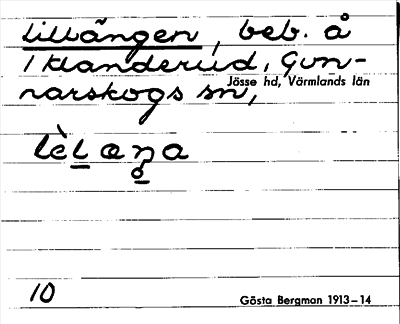 Lillängen, beb. å
1 Klanderud, Gun-
narskogs sn,
Jösse hd, Värmlands län
lèlæŋa
10
Gösta Bergman 1913–14